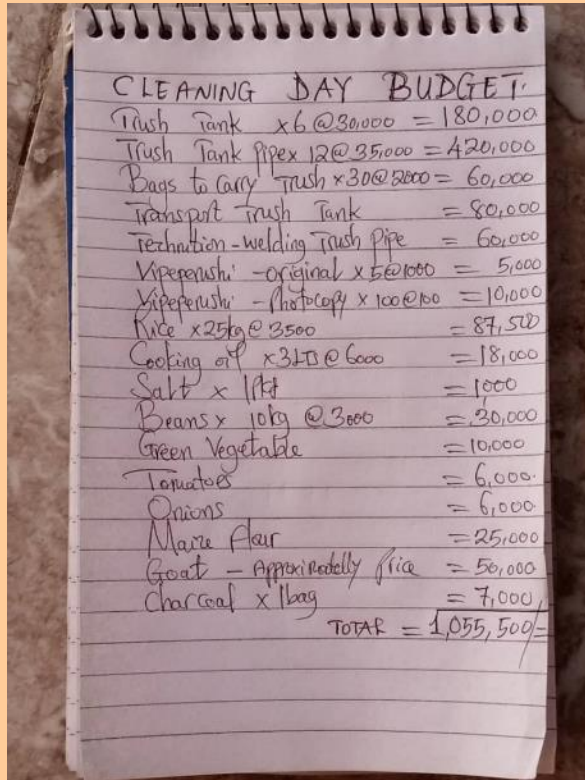 CLEANING DAY BUDGET.
Trush Tank x6 @30,000 = 180,000
Trush Tank Pipex 12@35,000 = 420,000
Bags to carry Trush x30@2000 = 60,000
Transport Trush Tank = 80,000
Technition-welding Trush Pipe = 60,000
Vipeperushi - original x 5@1000 = 5,000
Vipeperushi - Photocopy x 100@100 = 10,000
Rice x25kg@ 3500 = 87,500
Cooking oil x3LTS@ 6000 = 18,000
Salt x 1Pkt = 1000
Beans x 10kg @ 3000 = 30,000
Green Vegetable = 10,000
Tomatoes = 6,000.
Onions = 6,000
Maize flour = 25,000
Goat - Price = 50,000
Charcoal x 1bag = 7,000
TOTAR = 1,055,500/=